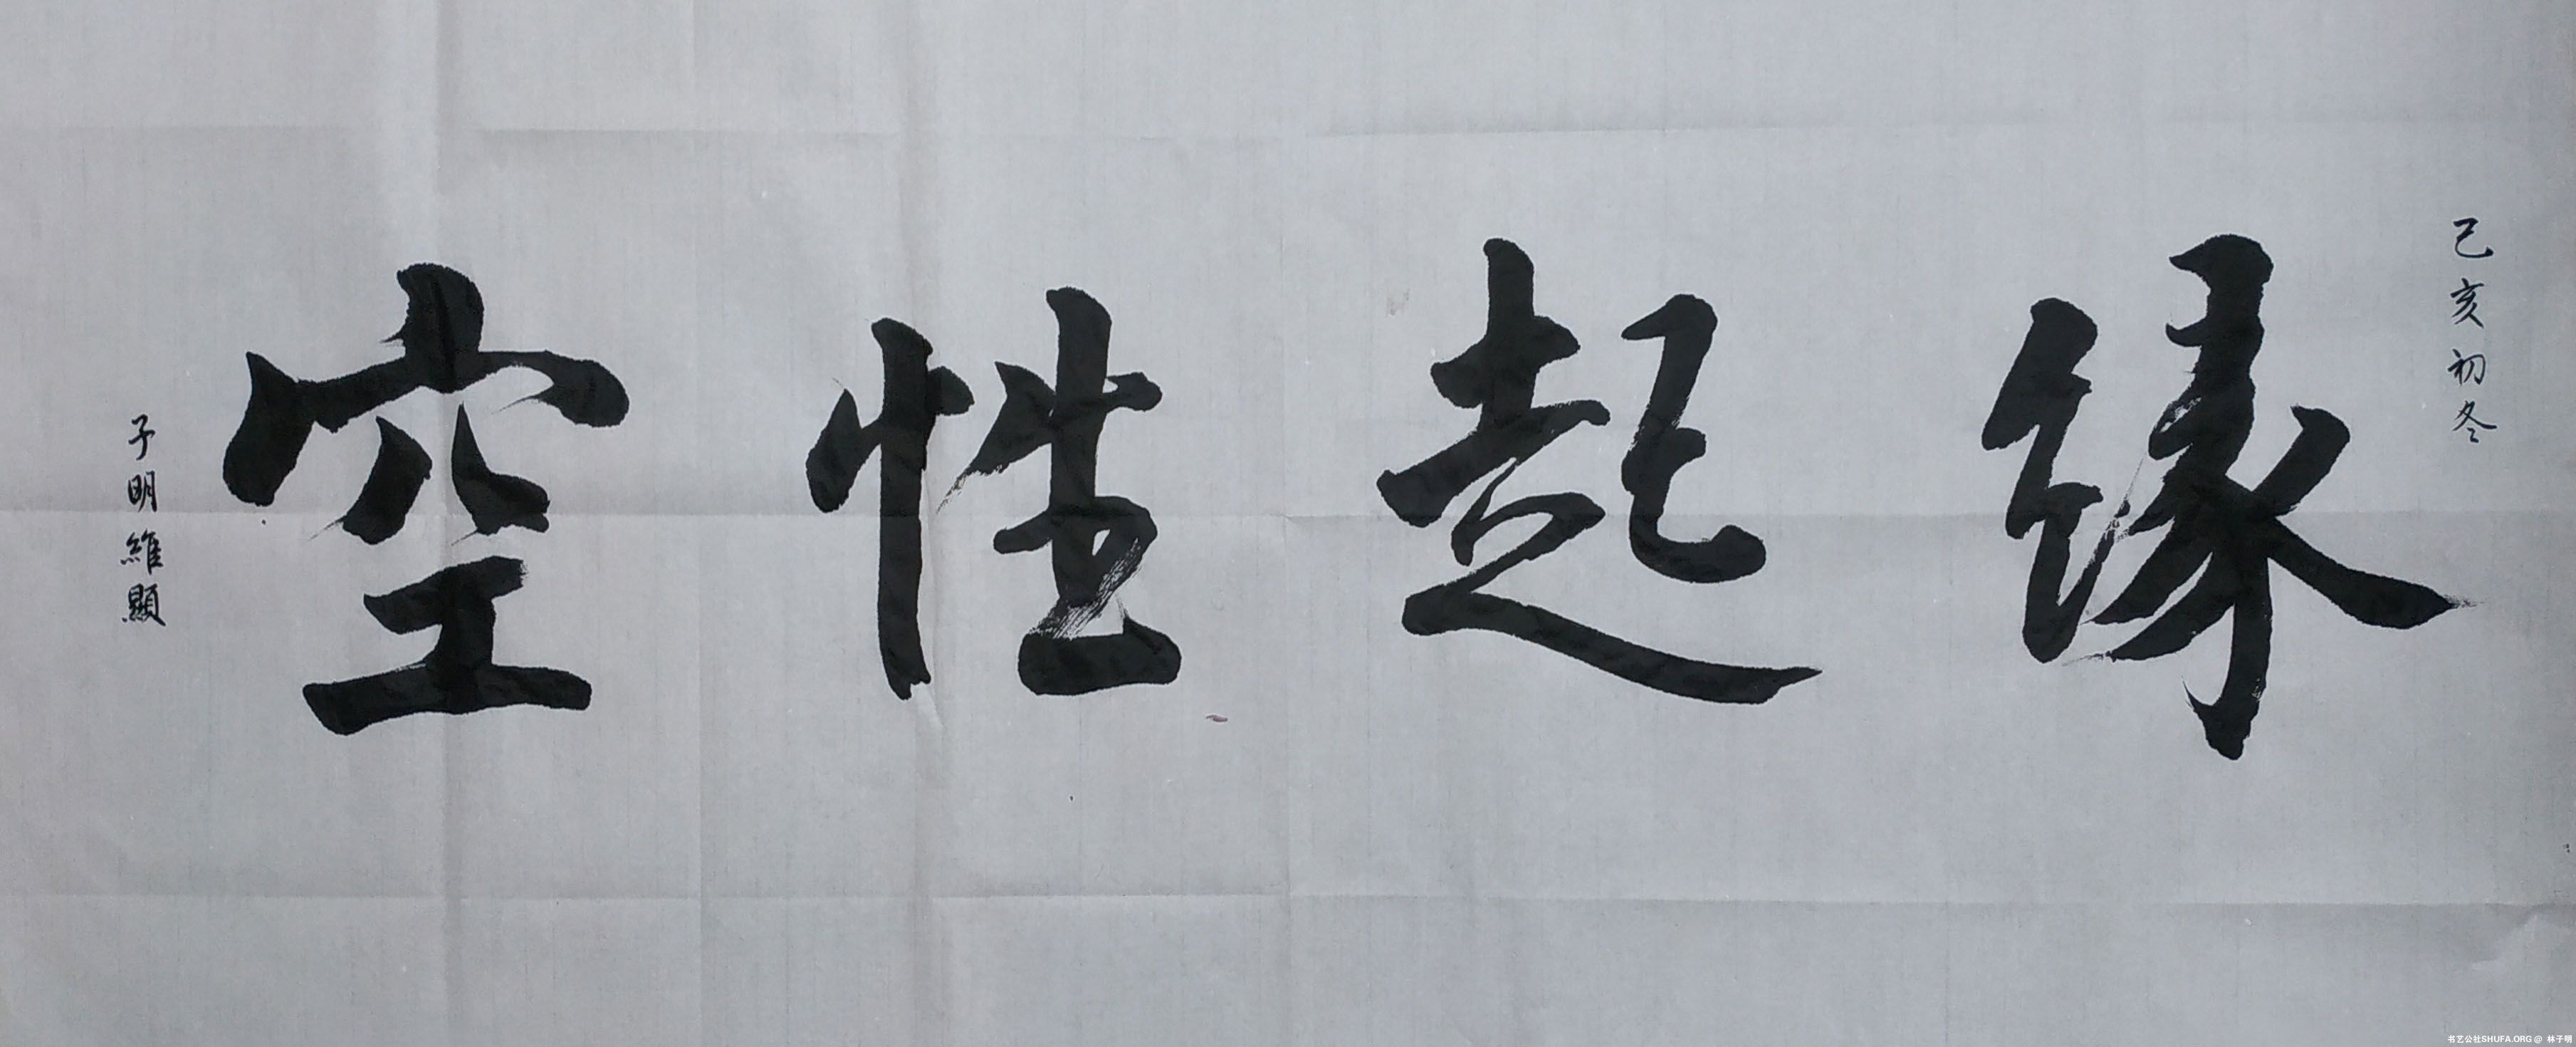 己亥初冬
緣起性空
子明維顯
书艺公社SHUFA.ORG @ 林子明